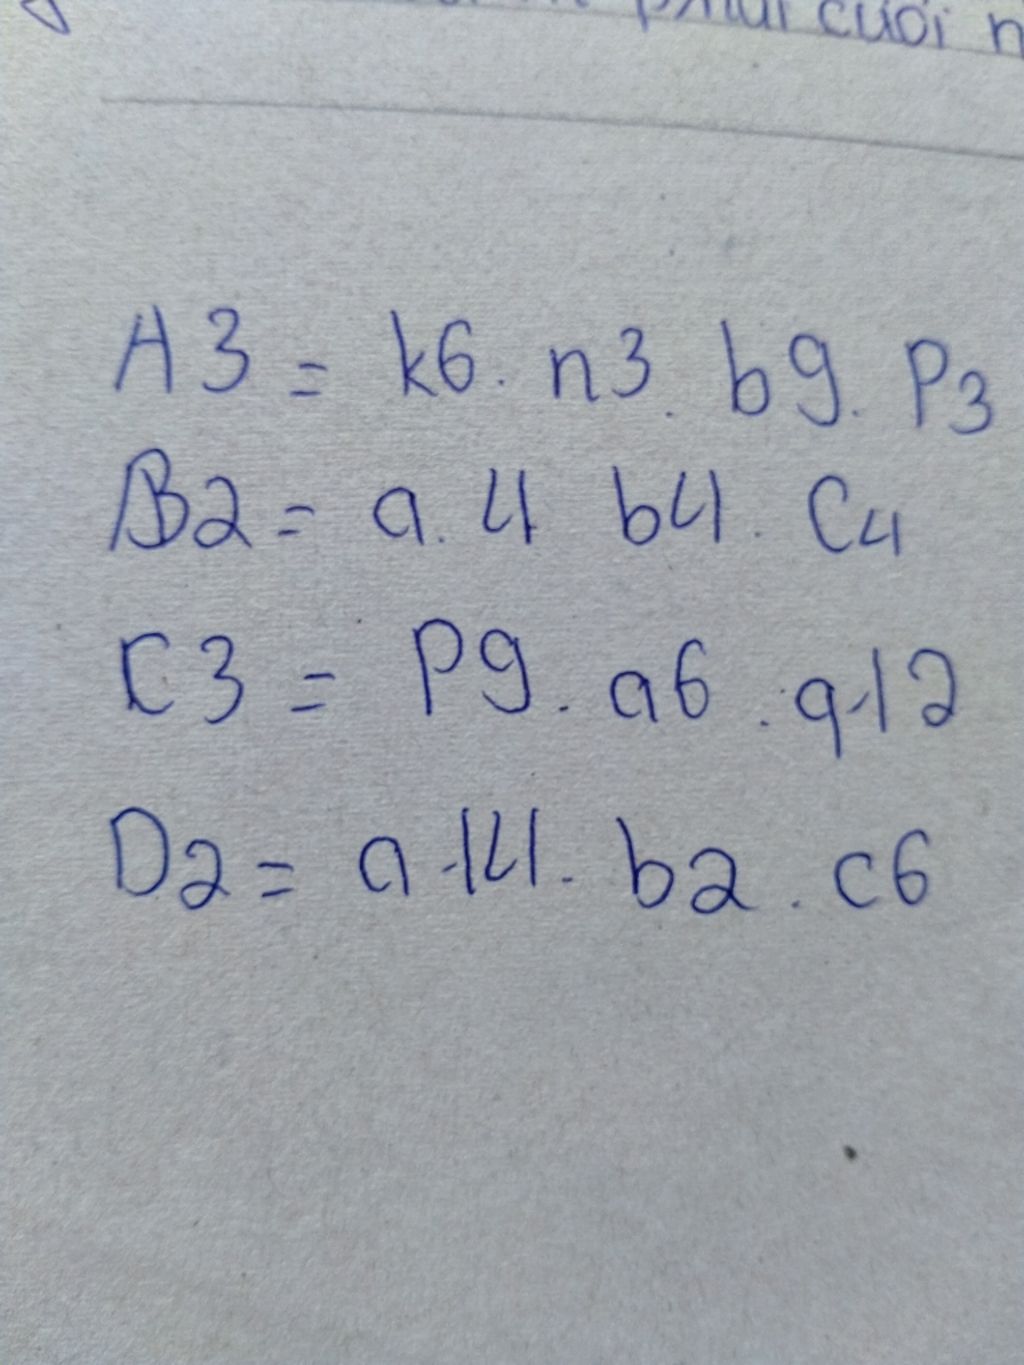 phải cuối n
A3 = k6. n3. b9. P3
B2 = a. 4 b4. C4
C3 = P9. a6. q.12
D2 = a.14. b2. c6